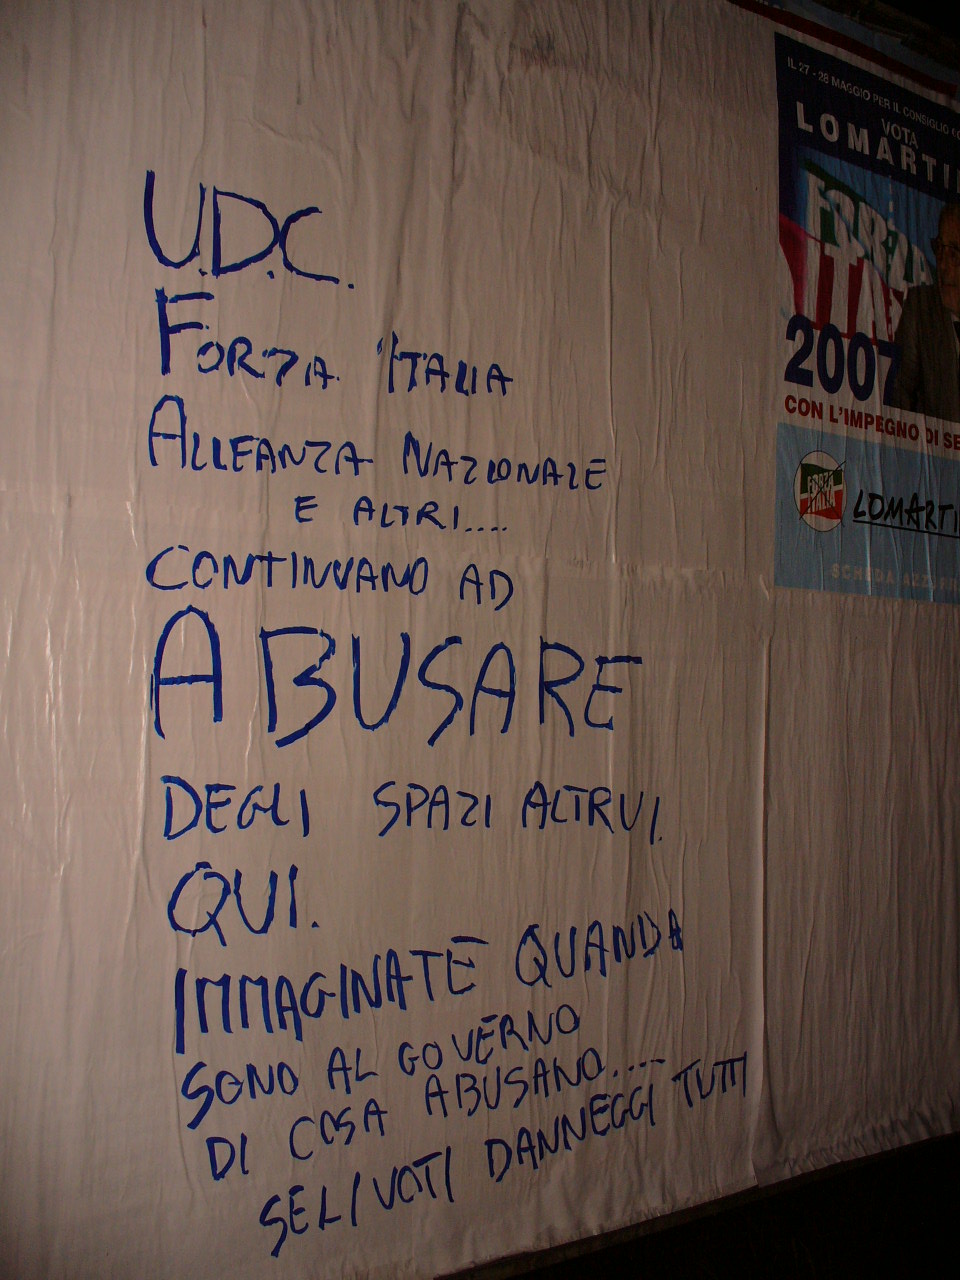 U.D.C.
FORZA ITALIA
ALLEANZA NAZIONALE
E ALTRI....
CONTINUANO AD
ABUSARE
DEGLI SPAZI ALTRUI.
QUI.
IMMAGINATE QUANDA
SONO AL GOVERNO
DI COSA ABUSANO....
SE LI VOTI DANNEGGI TUTTI
IL 27 - 28 MAGGIO PER IL CONSIGLIO
VOTA
LOMARTI
FORZA
ITA
2007
CON L'IMPEGNO DI SE
FORZA
ITALIA
LOMARTI
SCHEDA